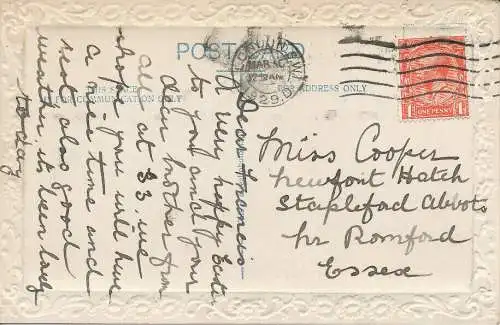 POST CARD
THIS SPACE
IS FOR COMMUNICATION ONLY
FOR ADDRESS ONLY
MAR
12
29
ONE PENNY
Dear Francis
A very happy Easter
to you and your
dear mother from
all at 83. We
hope you will have
a nice time and
rest also good
weather, its been lovely
today
Miss Cooper
Newport Hatch
Stapleford Abbots
Nr Romford
Essex